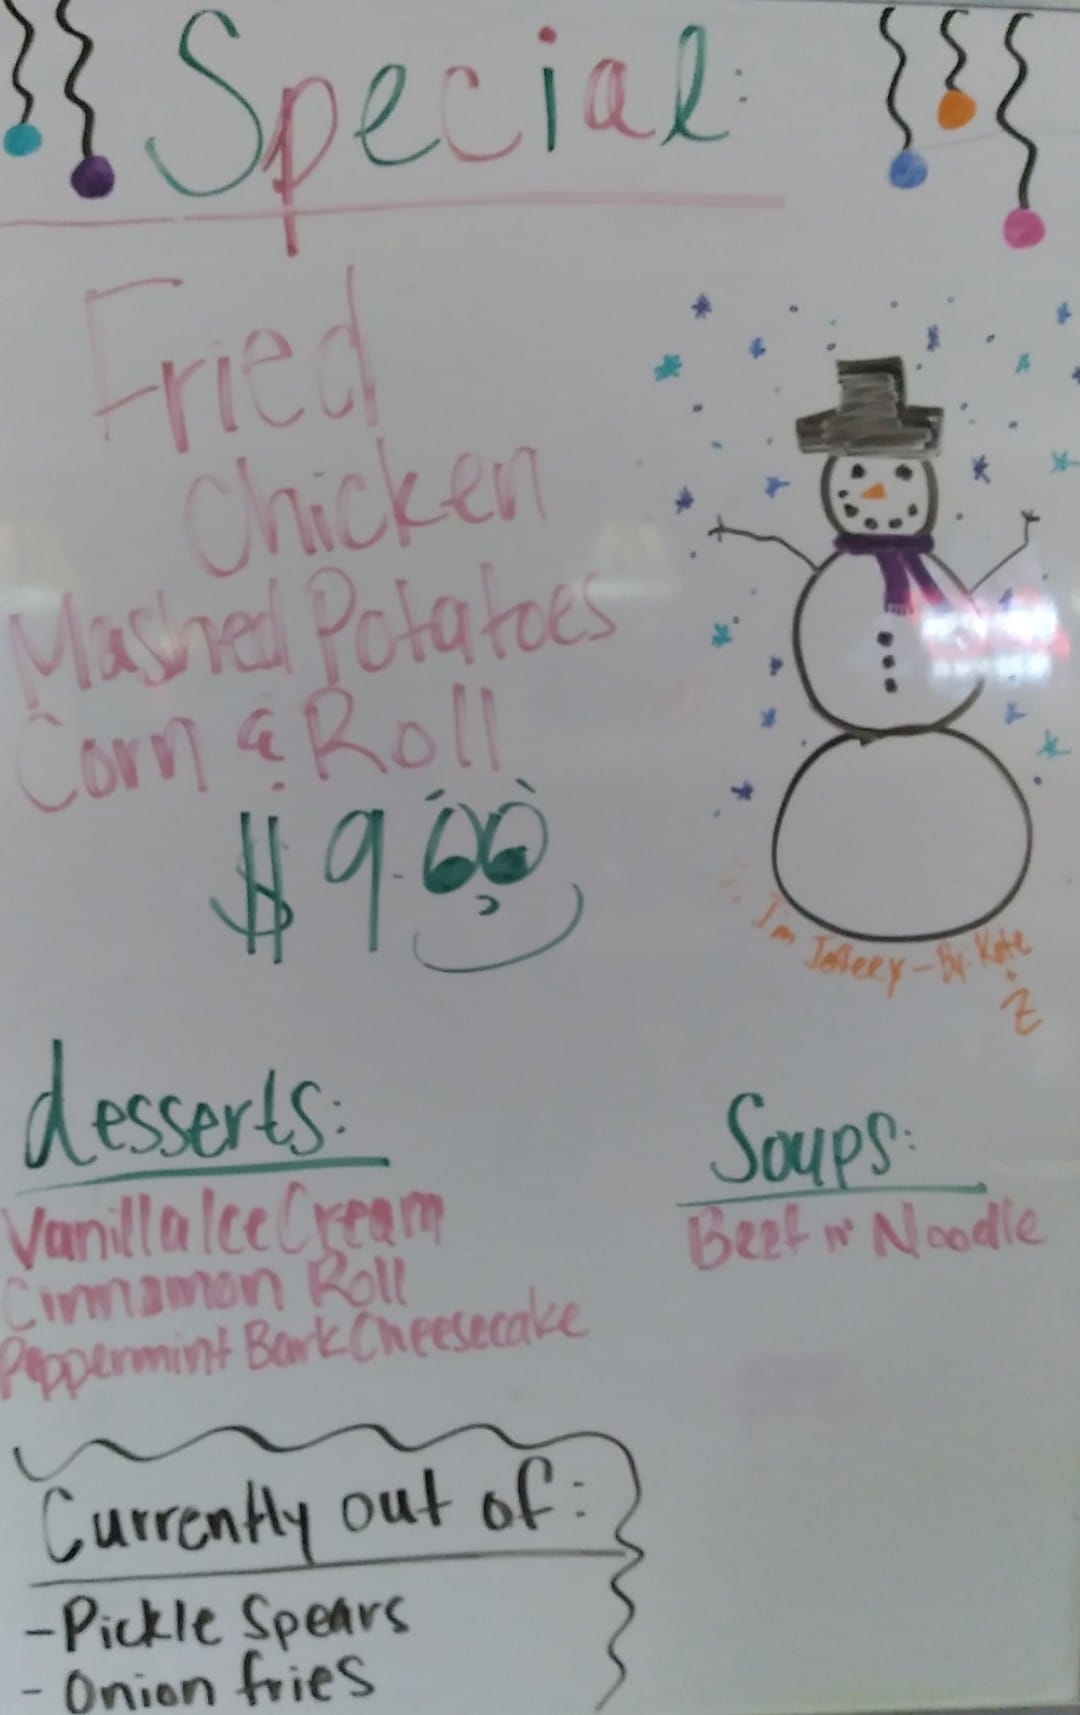 Special:
Fried
Chicken
Mashed Potatoes
Corn & Roll
$9.00
I'm Jeffery - By: Kate
+
Z
desserts:
Vanilla Ice Cream
Cinnamon Roll
Peppermint Bark Cheesecake
Soups:
Beef n' Noodle
Currently out of:
- Pickle Spears
- Onion fries